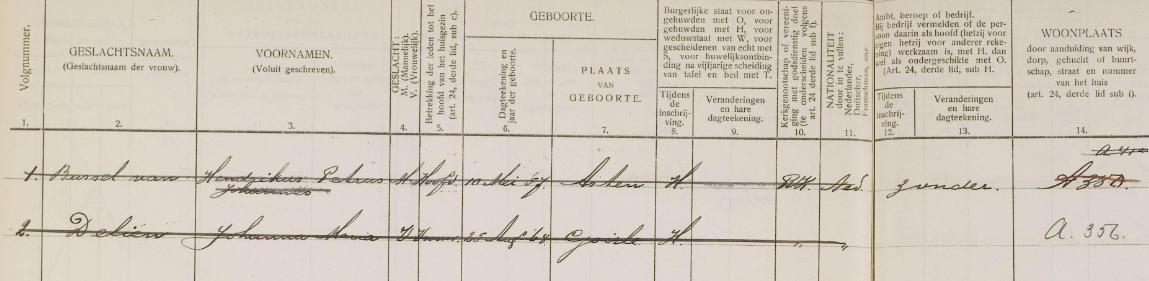 Volgnummer.
GESLACHTSNAAM.
(Geslachtsnaam der vrouw).
VOORNAMEN.
(Voluit geschreven).
GESLACHT:
M. (Mannelijk).
V. (Vrouwelijk).
Betrekking der leden tot het
hoofd van het huisgezin
(art. 24, derde lid, sub c).
GEBOORTE.
Dagteekening en
jaar der geboorte.
PLAATS
VAN
GEBOORTE.
Burgerlijke staat voor on-
gehuwden met O, voor
gehuwden met H, voor
weduwstaat met W, voor
gescheidenen van echt met
S, voor huwelijksontbin-
ding na vijfjarige scheiding
van tafel en bed met T.
Tijdens
de
inschrij-
ving.
Veranderingen
en hare
dagteekening.
Kerkgenootschap of vereeni-
ging met godsdienstig doel
(te onderscheiden volgens
art. 24 derde lid sub f).
NATIONALITEIT
door in te vullen:
Nederlander,
Duitscher,
Franschman, enz.
Ambt, beroep of bedrijf.
Bij bedrijf vermelden of de per-
soon daarin als hoofd (hetzij voor
eigen hetzij voor anderer reke-
ning) werkzaam is, met H. dan
wel als ondergeschikte met O.
(Art. 24, derde lid, sub H.
Tijdens
de
inschrij-
ving.
Veranderingen
en hare
dagteekening.
WOONPLAATS
door aanduiding van wijk,
dorp, gehucht of buurt-
schap, straat en nummer
van het huis
(art. 24, derde lid sub i).
1. 2. 3. 4. 5. 6. 7. 8. 9. 10. 11. 12. 13. 14.
1. Bussel van Hendrikus Petrus M. Hoofd. 10 Mei 57 Asten H. RK. Ned. zonder. A 350.
Johannes
2. Deliën Johanna Maria V. 25 Aug '68 H. „ „ A. 356.